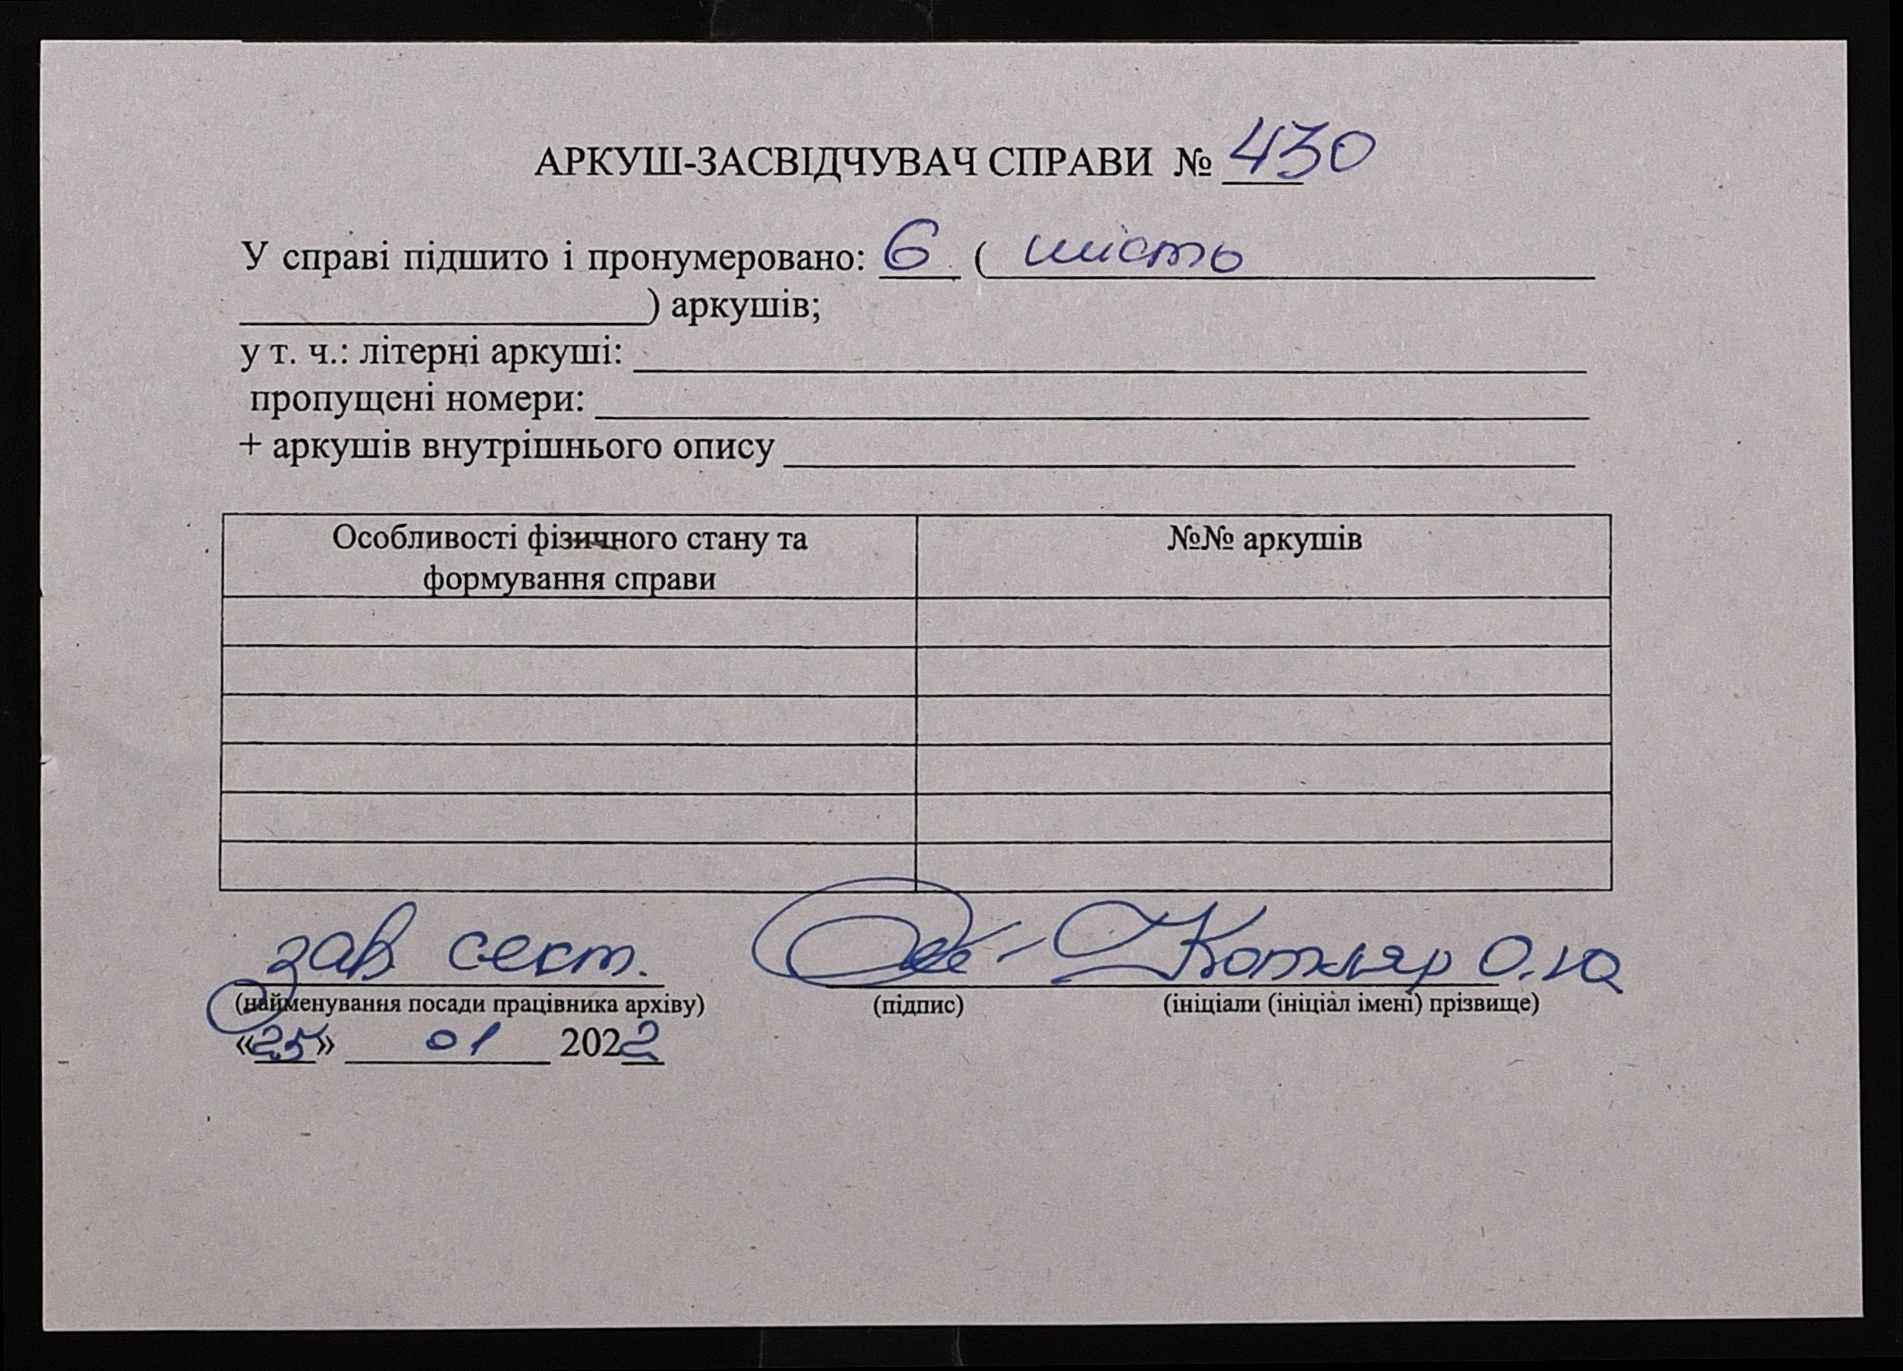 АРКУШ-ЗАСВІДЧУВАЧ СПРАВИ № 430
У справі підшито і пронумеровано: 6 ( шість
) аркушів;
у т. ч.: літерні аркуші:
пропущені номери:
+ аркушів внутрішнього опису
Особливості фізичного стану та
формування справи
№№ аркушів
зав сект. Котляр О.Ю
(найменування посади працівника архіву) (підпис) (ініціали (ініціал імені) прізвище)
«25» 01 2022